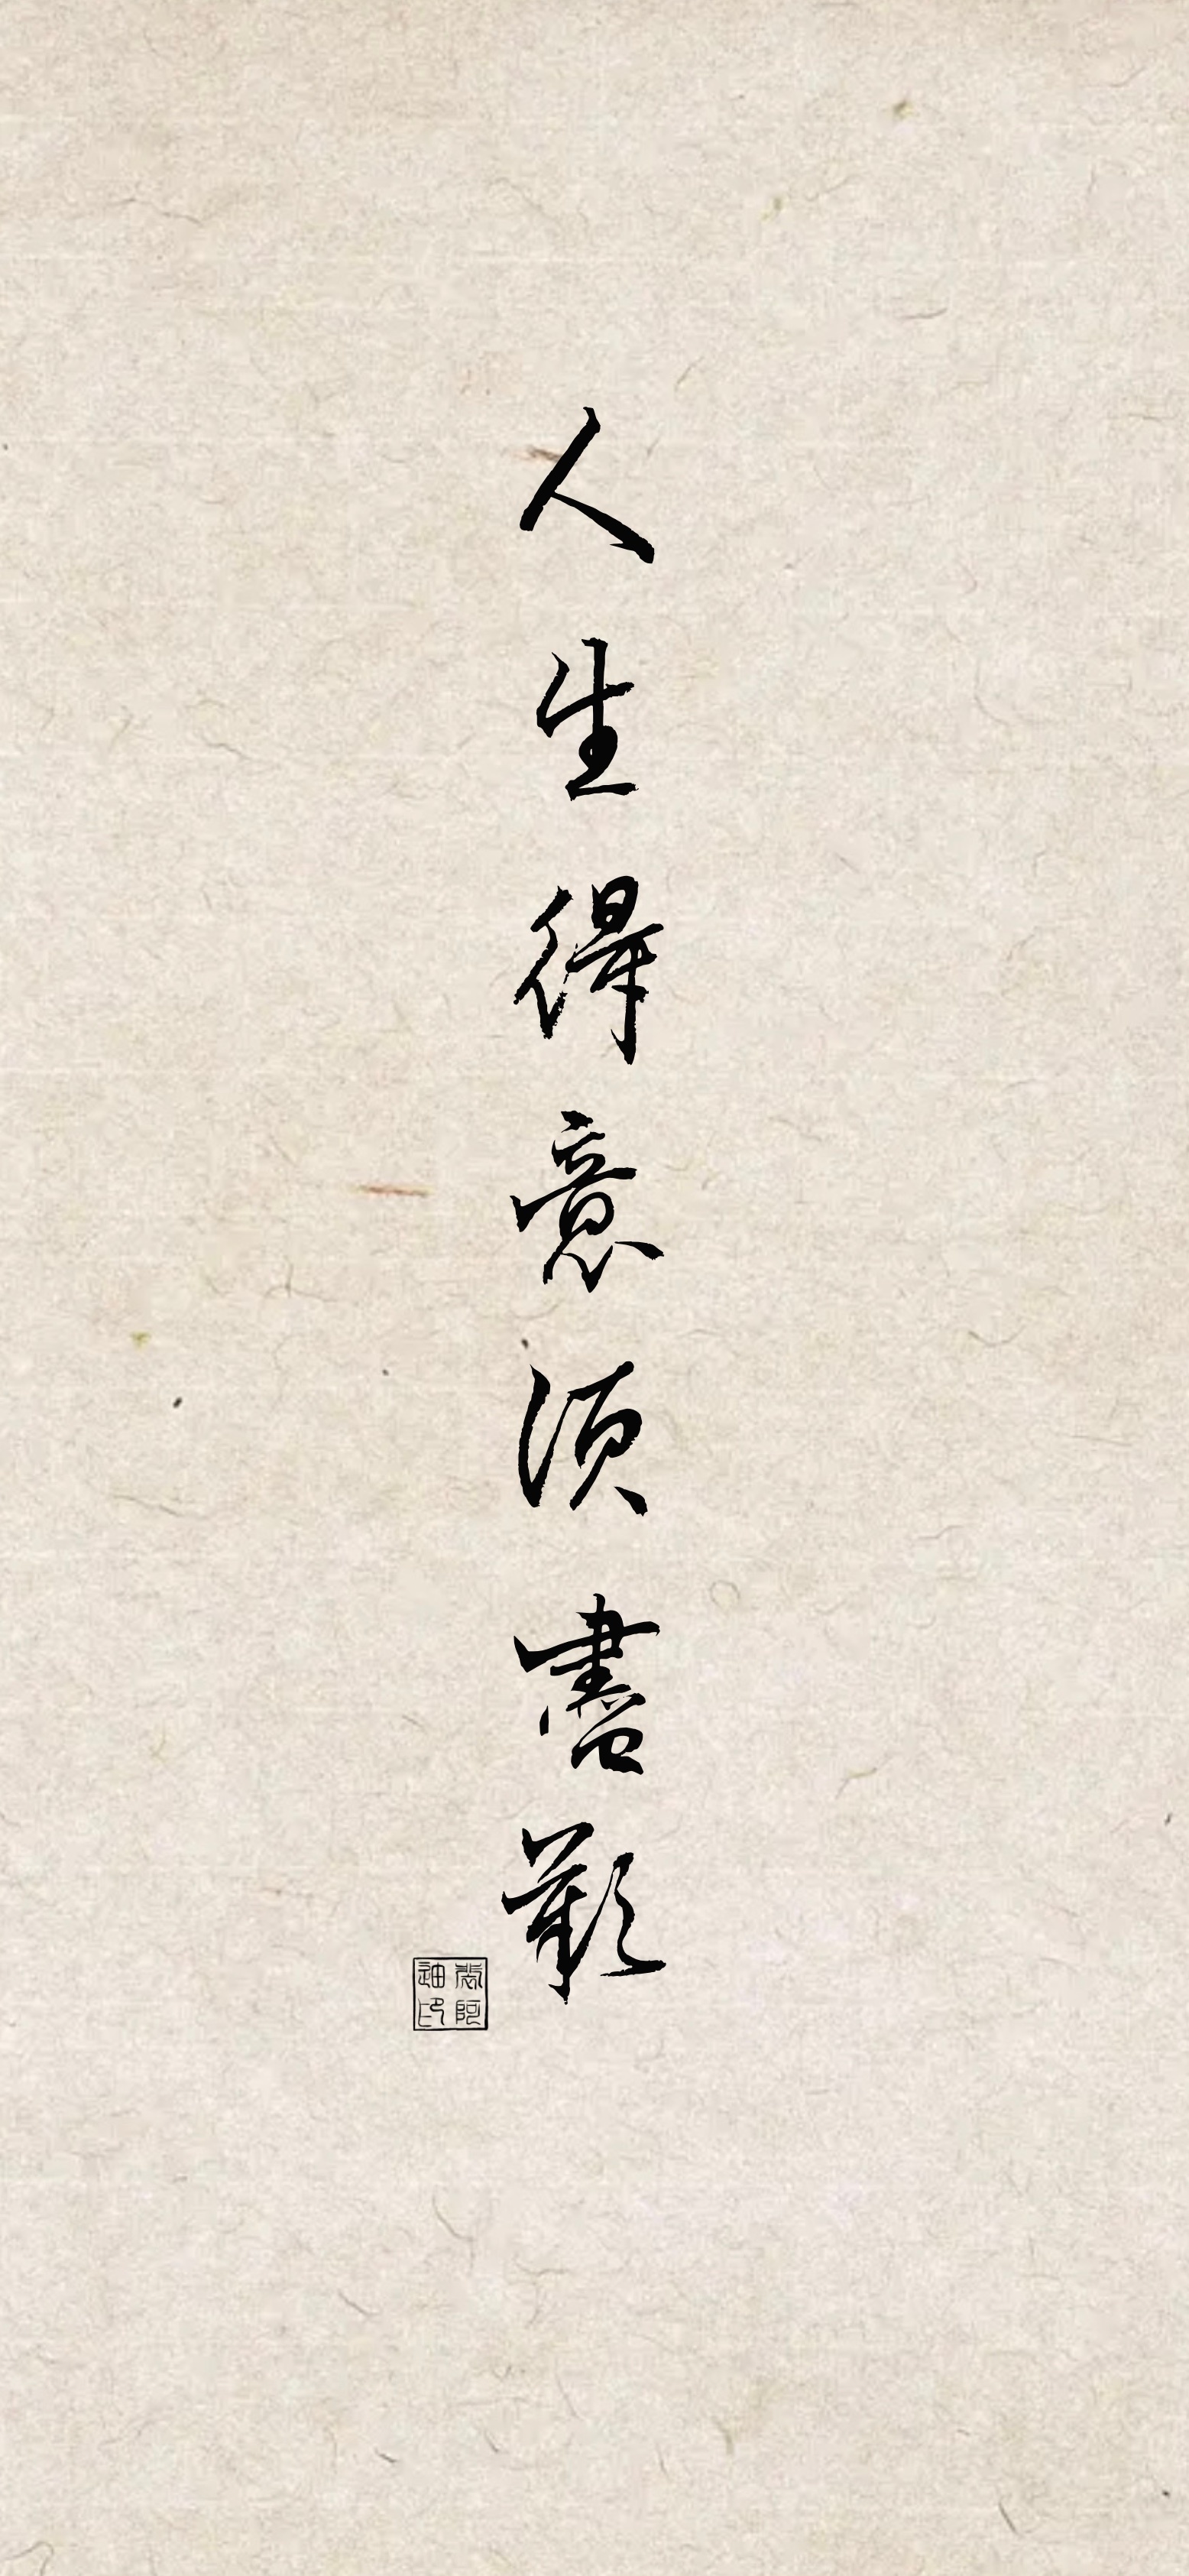 人生得意須盡歡